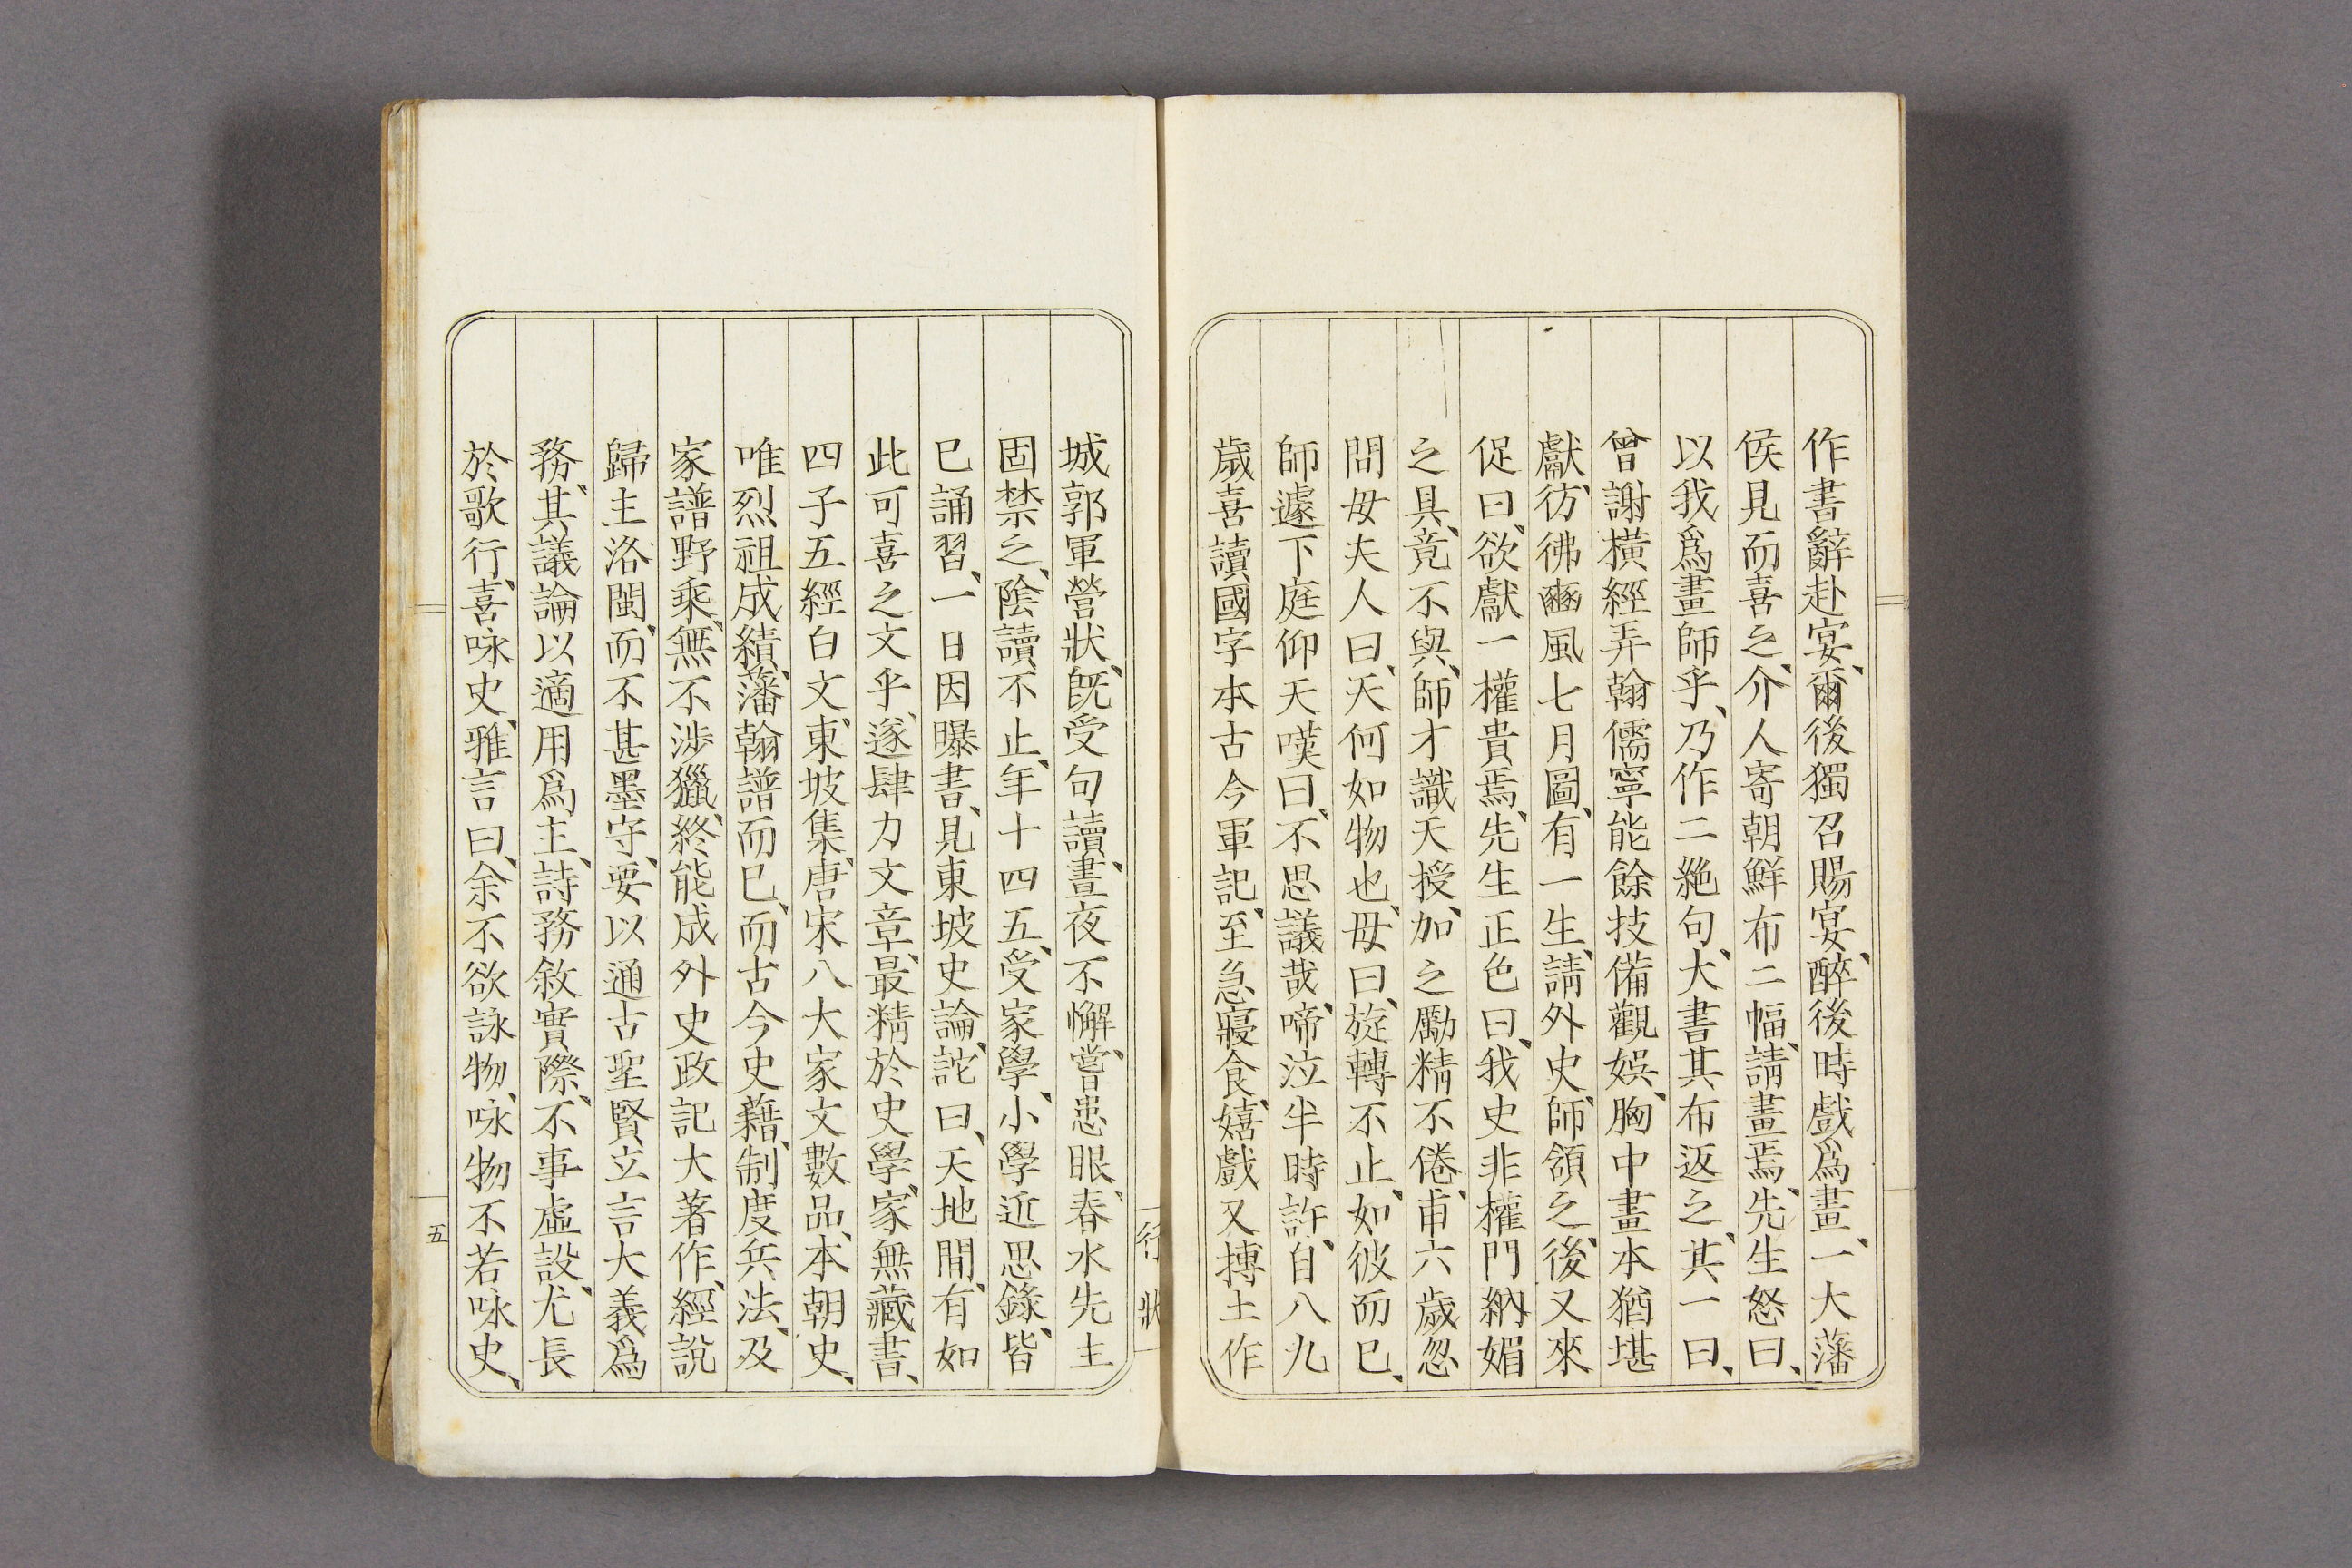 作書辭赴宴、爾後獨召賜宴、醉後時戲爲畫、一大藩
侯見而喜之、介人寄朝鮮布二幅、請畫焉、先生怒曰、
以我爲畫師乎、乃作二絶句、大書其布返之、其一曰、
曾謝横經弄翰儒寧能餘技備觀娯、胸中畫本猶堪
獻、彷彿豳風七月圖、有一生、請外史、師頷之、後又來
促曰、欲獻一權貴焉、先生正色曰、我史非權門納媚
之具、竟不與、師才識天授、加之勵精不倦、甫六歲忽
問母夫人曰、天何如物也、母曰、旋轉不止、如彼而已、
師遽下庭仰天嘆曰、不思議哉、啼泣半時許、自八九
歲喜讀國字本古今軍記、至急寢食、嬉戲又摶土作
城郭軍營狀、既受句讀、晝夜不懈、嘗患眼、春水先生
固禁之、陰讀不止、年十四五、受家學、小學近思錄、皆
已誦習、一日因曝書、見東坡史論、詫曰、天地間、有如
此可喜之文乎、遂肆力文章、最精於史學、家無藏書、
四子五經白文、東坡集、唐宋八大家文數品、本朝史、
唯烈祖成績、藩翰譜而已、而古今史藉、制度兵法、及
家譜野乘、無不涉獵、終能成外史政記大著作、經說
歸主洛閩、而不甚墨守、要以通古聖賢立言大義爲
務、其議論以適用爲主、詩務敘實際、不事虛設、尤長
於歌行、喜咏史、雅言曰、余不欲詠物、咏物不若咏史、
行狀
五